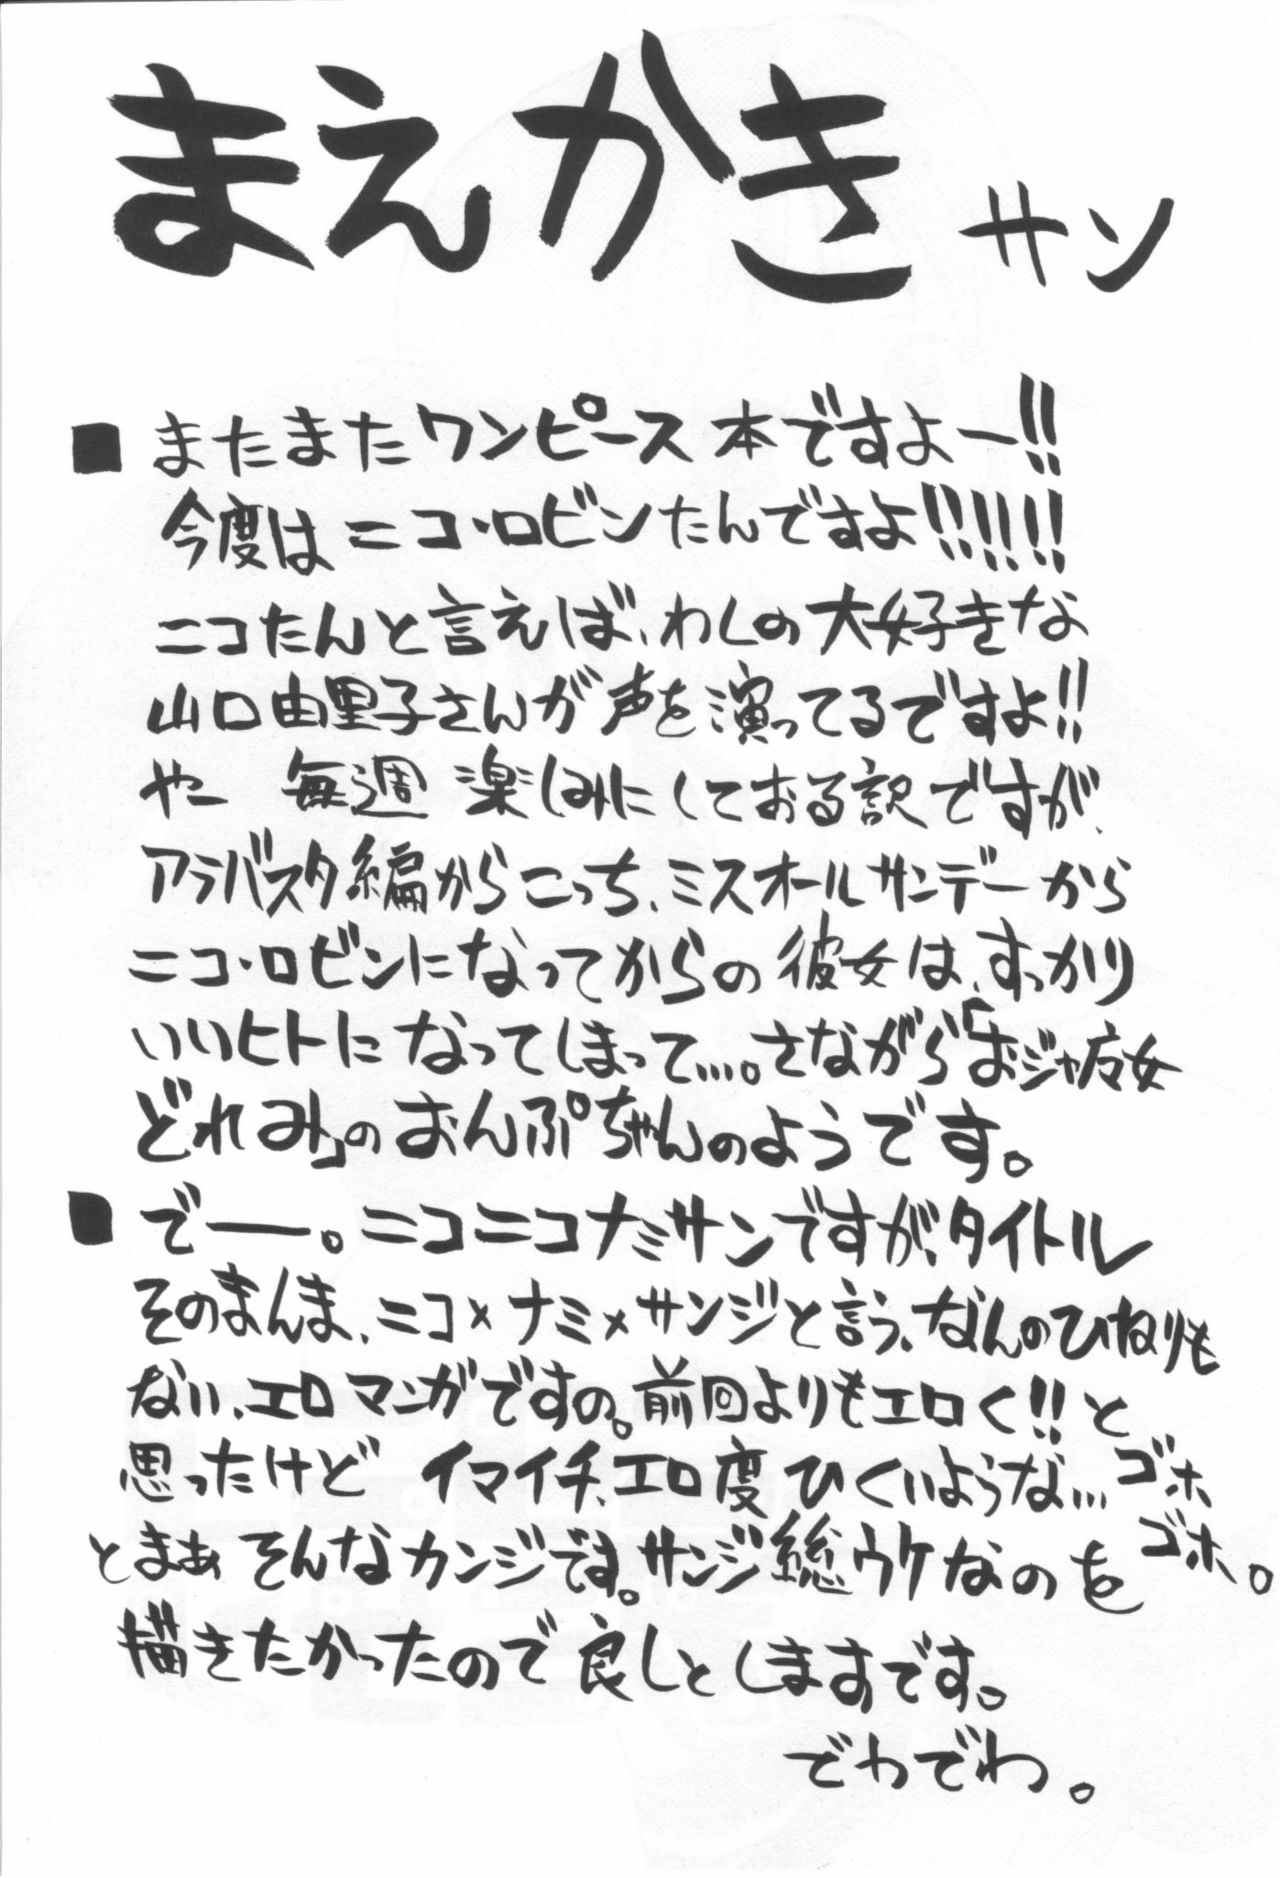 まえかき サン
■またまたワンピース本ですよー!!
今度はニコ・ロビンたんですよ!!!!!!
ニコたんと言えば、わしの大好きな
山口由里子さんが声を演ってるですよ!!
やー 毎週楽しみにしておる訳ですが、
アラバスタ編からこっち、ミスオールサンデーから
ニコ・ロビンになってからの彼女は、すっかり
いいヒトになってしまって…。さながら「おジャ魔女
どれみ」のおんぷちゃんのようです。
■でー。ニコニコナミサンですが、タイトル
そのまんま、ニコ×ナミ×サンジと言う、なんのひねりも
ない、エロマンガですの。前回よりもエロく!!と
思ったけど イマイチ、エロ度ひくいような… ゴホ
ゴホ。
とまぁそんなカンジです。サンジ総ウケなのを
描きたかったので良しとしますです。
でわでわ。